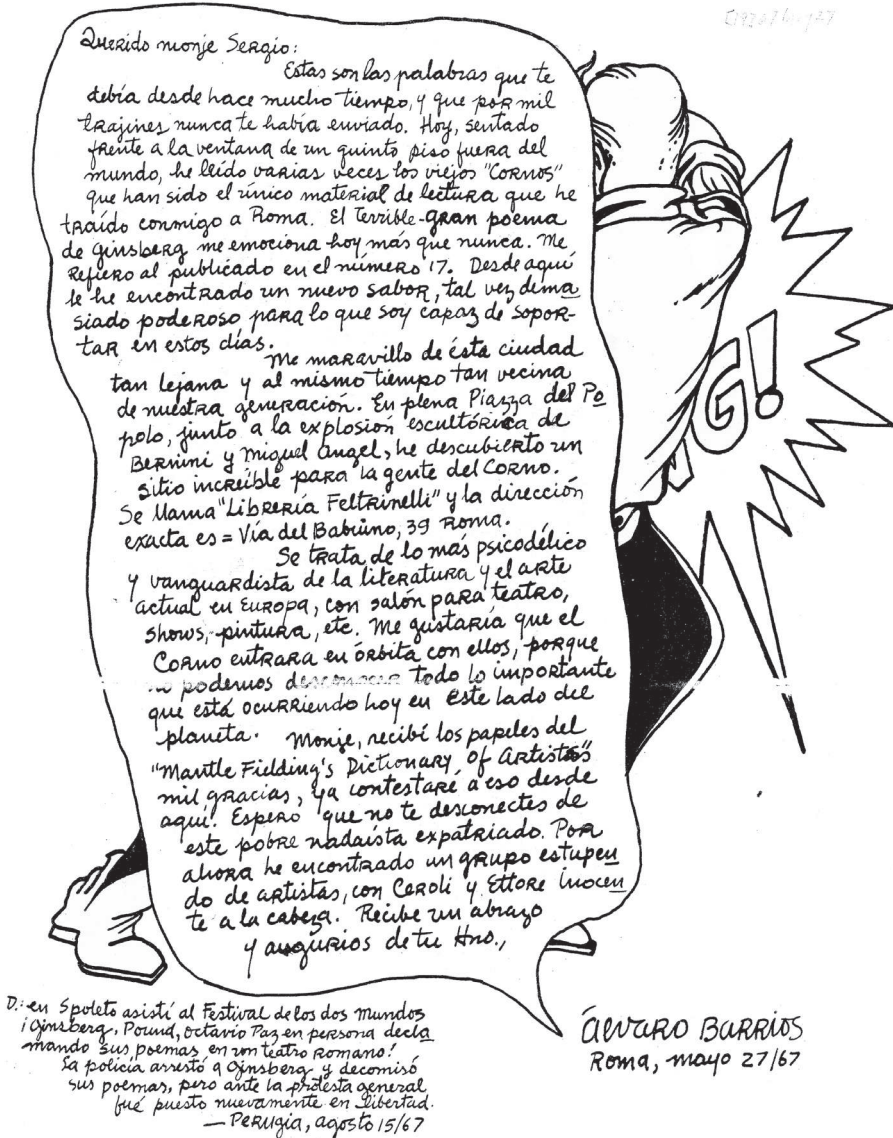 Querido monje Sergio:
Estas son las palabras que te
debía desde hace mucho tiempo, y que por mil
trajines nunca te había enviado. Hoy, sentado
frente a la ventana de un quinto piso fuera del
mundo, he leído varias veces los viejos "Cornos"
que han sido el único material de lectura que he
traído conmigo a Roma. El terrible-gran poema
de Ginsberg me emociona hoy más que nunca. Me
refiero al publicado en el número 17. Desde aquí
le he encontrado un nuevo sabor, tal vez dema
siado poderoso para lo que soy capaz de sopor-
tar en estos días.
Me maravillo de ésta ciudad
tan lejana y al mismo tiempo tan vecina
de nuestra generación. En plena Piazza del Po
polo, junto a la explosión escultórica de
Bernini y Miguel angel, he descubierto un
sitio increíble para la gente del Corno.
Se llama "Librería Feltrinelli" y la dirección
exacta es = Vía del Babuino, 39 Roma.
Se trata de lo más psicodélico
y vanguardista de la literatura y el arte
actual en Europa, con salón para teatro,
shows, pintura, etc. Me gustaría que el
Corno entrara en órbita con ellos, porque
no podemos desconocer todo lo importante
que está ocurriendo hoy en este lado del
planeta. Monje, recibí los papeles del
"Mantle Fielding's Dictionary of Artists"
mil gracias, ya contestaré a eso desde
aquí. Espero que no te desconectes de
este pobre nadaísta expatriado. Por
ahora he encontrado un grupo estupen
do de artistas, con Ceroli y Ettore Inocen
te a la cabeza. Recibe un abrazo
y augurios de tu Hno.,
G!
Álvaro Barrios
Roma, mayo 27/67
D.: en Spoleto asistí al Festival de los dos mundos
¡Ginsberg, Pound, octavio Paz en persona decla
mando sus poemas en un teatro romano!
La policía arrestó a Ginsberg y decomisó
sus poemas, pero ante la protesta general
fué puesto nuevamente en libertad.
— Perugia, agosto 15/67